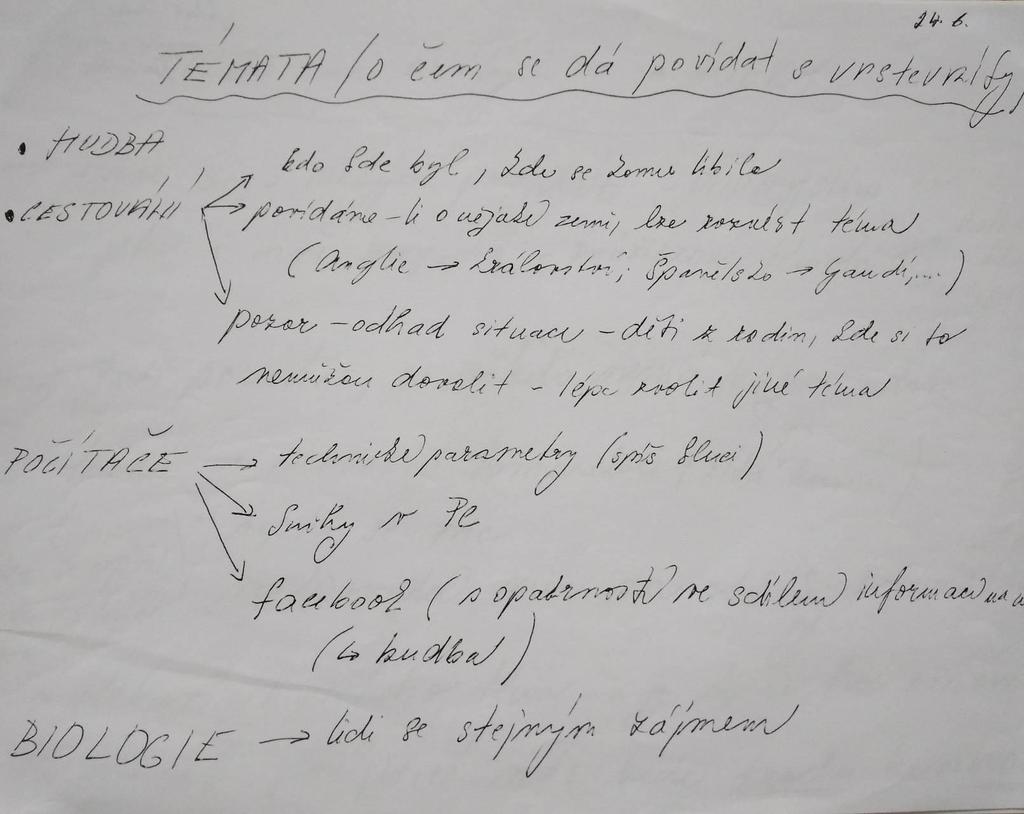 24. 6.
TÉMATA / o čem se dá povídat s vrstevníky
• HUDBA
kdo kde byl, kde se komu líbilo
• CESTOVÁNÍ
povídáme-li o nějaké zemi, lze rozvést téma
(Anglie → království; Španělsko → Gaudí,...)
pozor - odhad situace - děti z rodin, kde si to
nemůžou dovolit - lépe zvolit jiné téma
POČÍTAČE → technické parametry (spíš kluci)
v PC
facebook (s opatrností ve sdílení informací
(↳ hudba)
BIOLOGIE → lidi se stejným zájmem